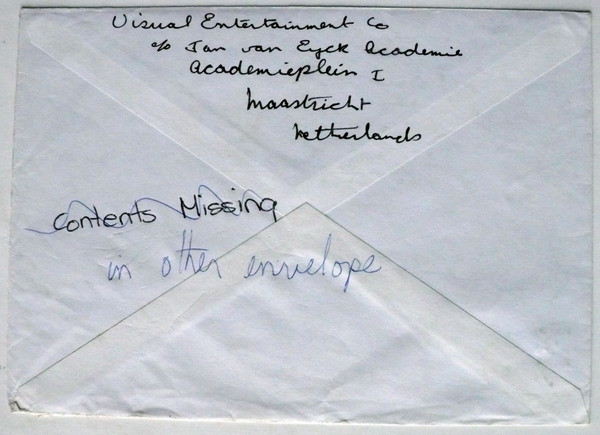 Visual Entertainment Co
c/o Jan van Eyck Academie
Academieplein 1
Maastricht
Netherlands
Contents Missing
in other envelope